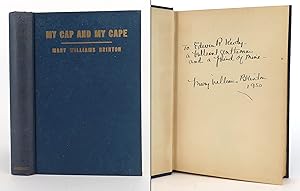 MY CAP AND MY CAPE
MARY WILLIAMS BRINTON
To Edwin P.
a brilliant gentleman
and a friend of mine
Mary Williams Brinton
1950